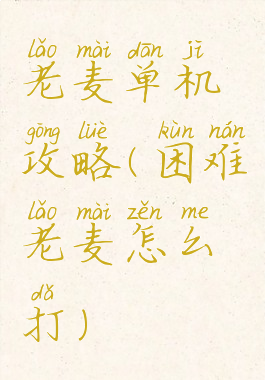 lǎo mài dān jī
老麦单机
gōng lüè kùn nán
攻略(困难
lǎo mài zěn me
老麦怎么
dǎ
打)